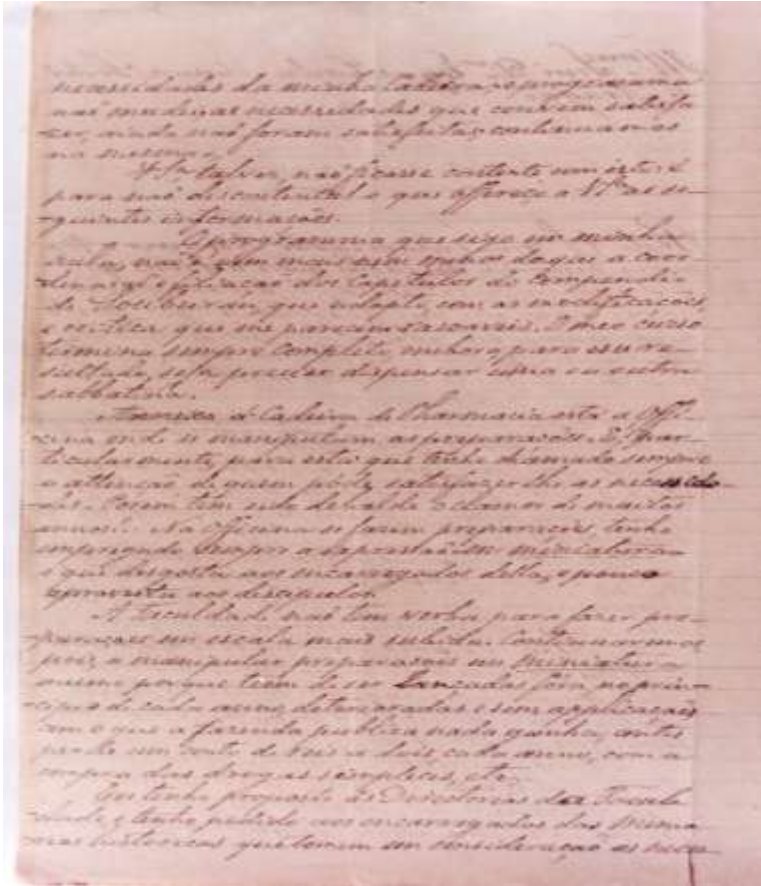 necessidades da minha Cadeira, o programma
nas mudanças necessidades que convem satisfa
zer, ainda não foram satisfeitas; continuamos
na mesma.
V. Exª talvez, não ficasse contente com isto: é
para não descontental-o que offereço a V. Exª as se-
guintes informações.
O programma que sigo em minha
aula, não é nem mais nem menos do que a coor
dinar a explicação dos Capitulos do Compendio
de Soubeiran, que adopto, com as modificações
e critica que me parecem rasoaveis. O meo curso
termina sempre completo, embora, para esse re-
sultado, seja preciso dispensar uma ou outra
sabbatina.
Annexa á Cadeira de Pharmacia está a Offi-
cina onde se manipulam as preparações. E' par-
ticularmente, para esta que tenho chamado sempre
a attenção de quem pode satisfazer-lhe as necessida-
des. Porem tem sido debalde o clamor de muitos
annos. Na Officina se fazem preparações, tenho
empregado sempre a expressão em miniatura
o que desgosta aos encarregados della, e pouco
aproveita aos discipulos.
A Faculdade não tem verba para fazer pre-
parações em escala mais subida. Continuaremos
pois, a manipular preparações em miniatura
mesmo porque teem de ser lançadas fóra, no prin-
cipio de cada anno, deterioradas e sem applicação
com o que a fazenda publica nada ganha, antes
perde um conto de reis a dois, cada anno, com a
compra das drogas simplices, etc.
Eu tenho proposto ás Directorias da Facul
dade, e tenho pedido aos encarregados das Memo
rias historicas que tomem em consideração as neces-